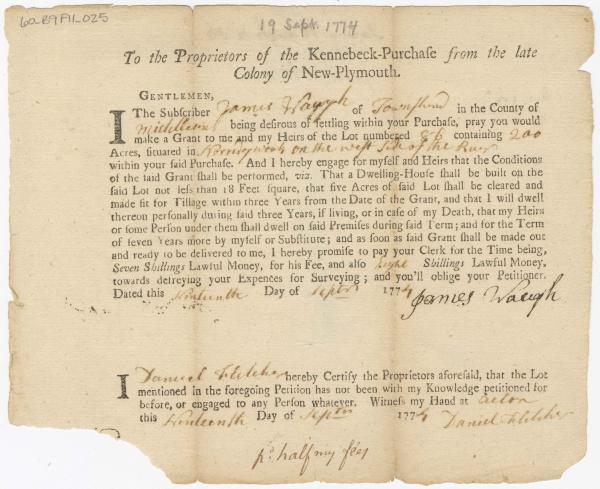 60.B9F1L.025
19 Sept. 1774
To the Proprietors of the Kennebeck-Purchaſe from the late
Colony of New-Plymouth.
GENTLEMEN,
I The Subſcriber James Waugh of Townshend in the County of
Middlesex being deſirous of ſettling within your Purchaſe, pray you would
make a Grant to me and my Heirs of the Lot numbered 86 containing 200
Acres, ſituated in Norridgwock on the west side of the River
within your ſaid Purchaſe. And I hereby engage for myſelf and Heirs that the Conditions
of the ſaid Grant ſhall be performed, viz. That a Dwelling-Houſe ſhall be built on the
ſaid Lot not leſs than 18 Feet ſquare, that five Acres of ſaid Lot ſhall be cleared and
made fit for Tillage within three Years from the Date of the Grant, and that I will dwell
thereon perſonally during ſaid three Years, if living, or in caſe of my Death, that my Heirs
or ſome Perſon under them ſhall dwell on ſaid Premiſes during ſaid Term; and for the Term
of ſeven Years more by myſelf or Subſtitute; and as ſoon as ſaid Grant ſhall be made out
and ready to be delivered to me, I hereby promiſe to pay your Clerk for the Time being,
Seven Shillings Lawful Money, for his Fee, and alſo Shillings Lawful Money,
towards defreying your Expences for Surveying; and you'll oblige your Petitioner.
Dated this Ninteenth Day of Septr 1774 James Waugh
I Daniel Fletcher hereby Certify the Proprietors aforeſaid, that the Lot
mentioned in the foregoing Petition has not been with my Knowledge petitioned for
before, or engaged to any Perſon whatever. Witneſs my Hand at acton
this Ninteenth Day of Septr 1774 Daniel Fletcher
pd half my fees